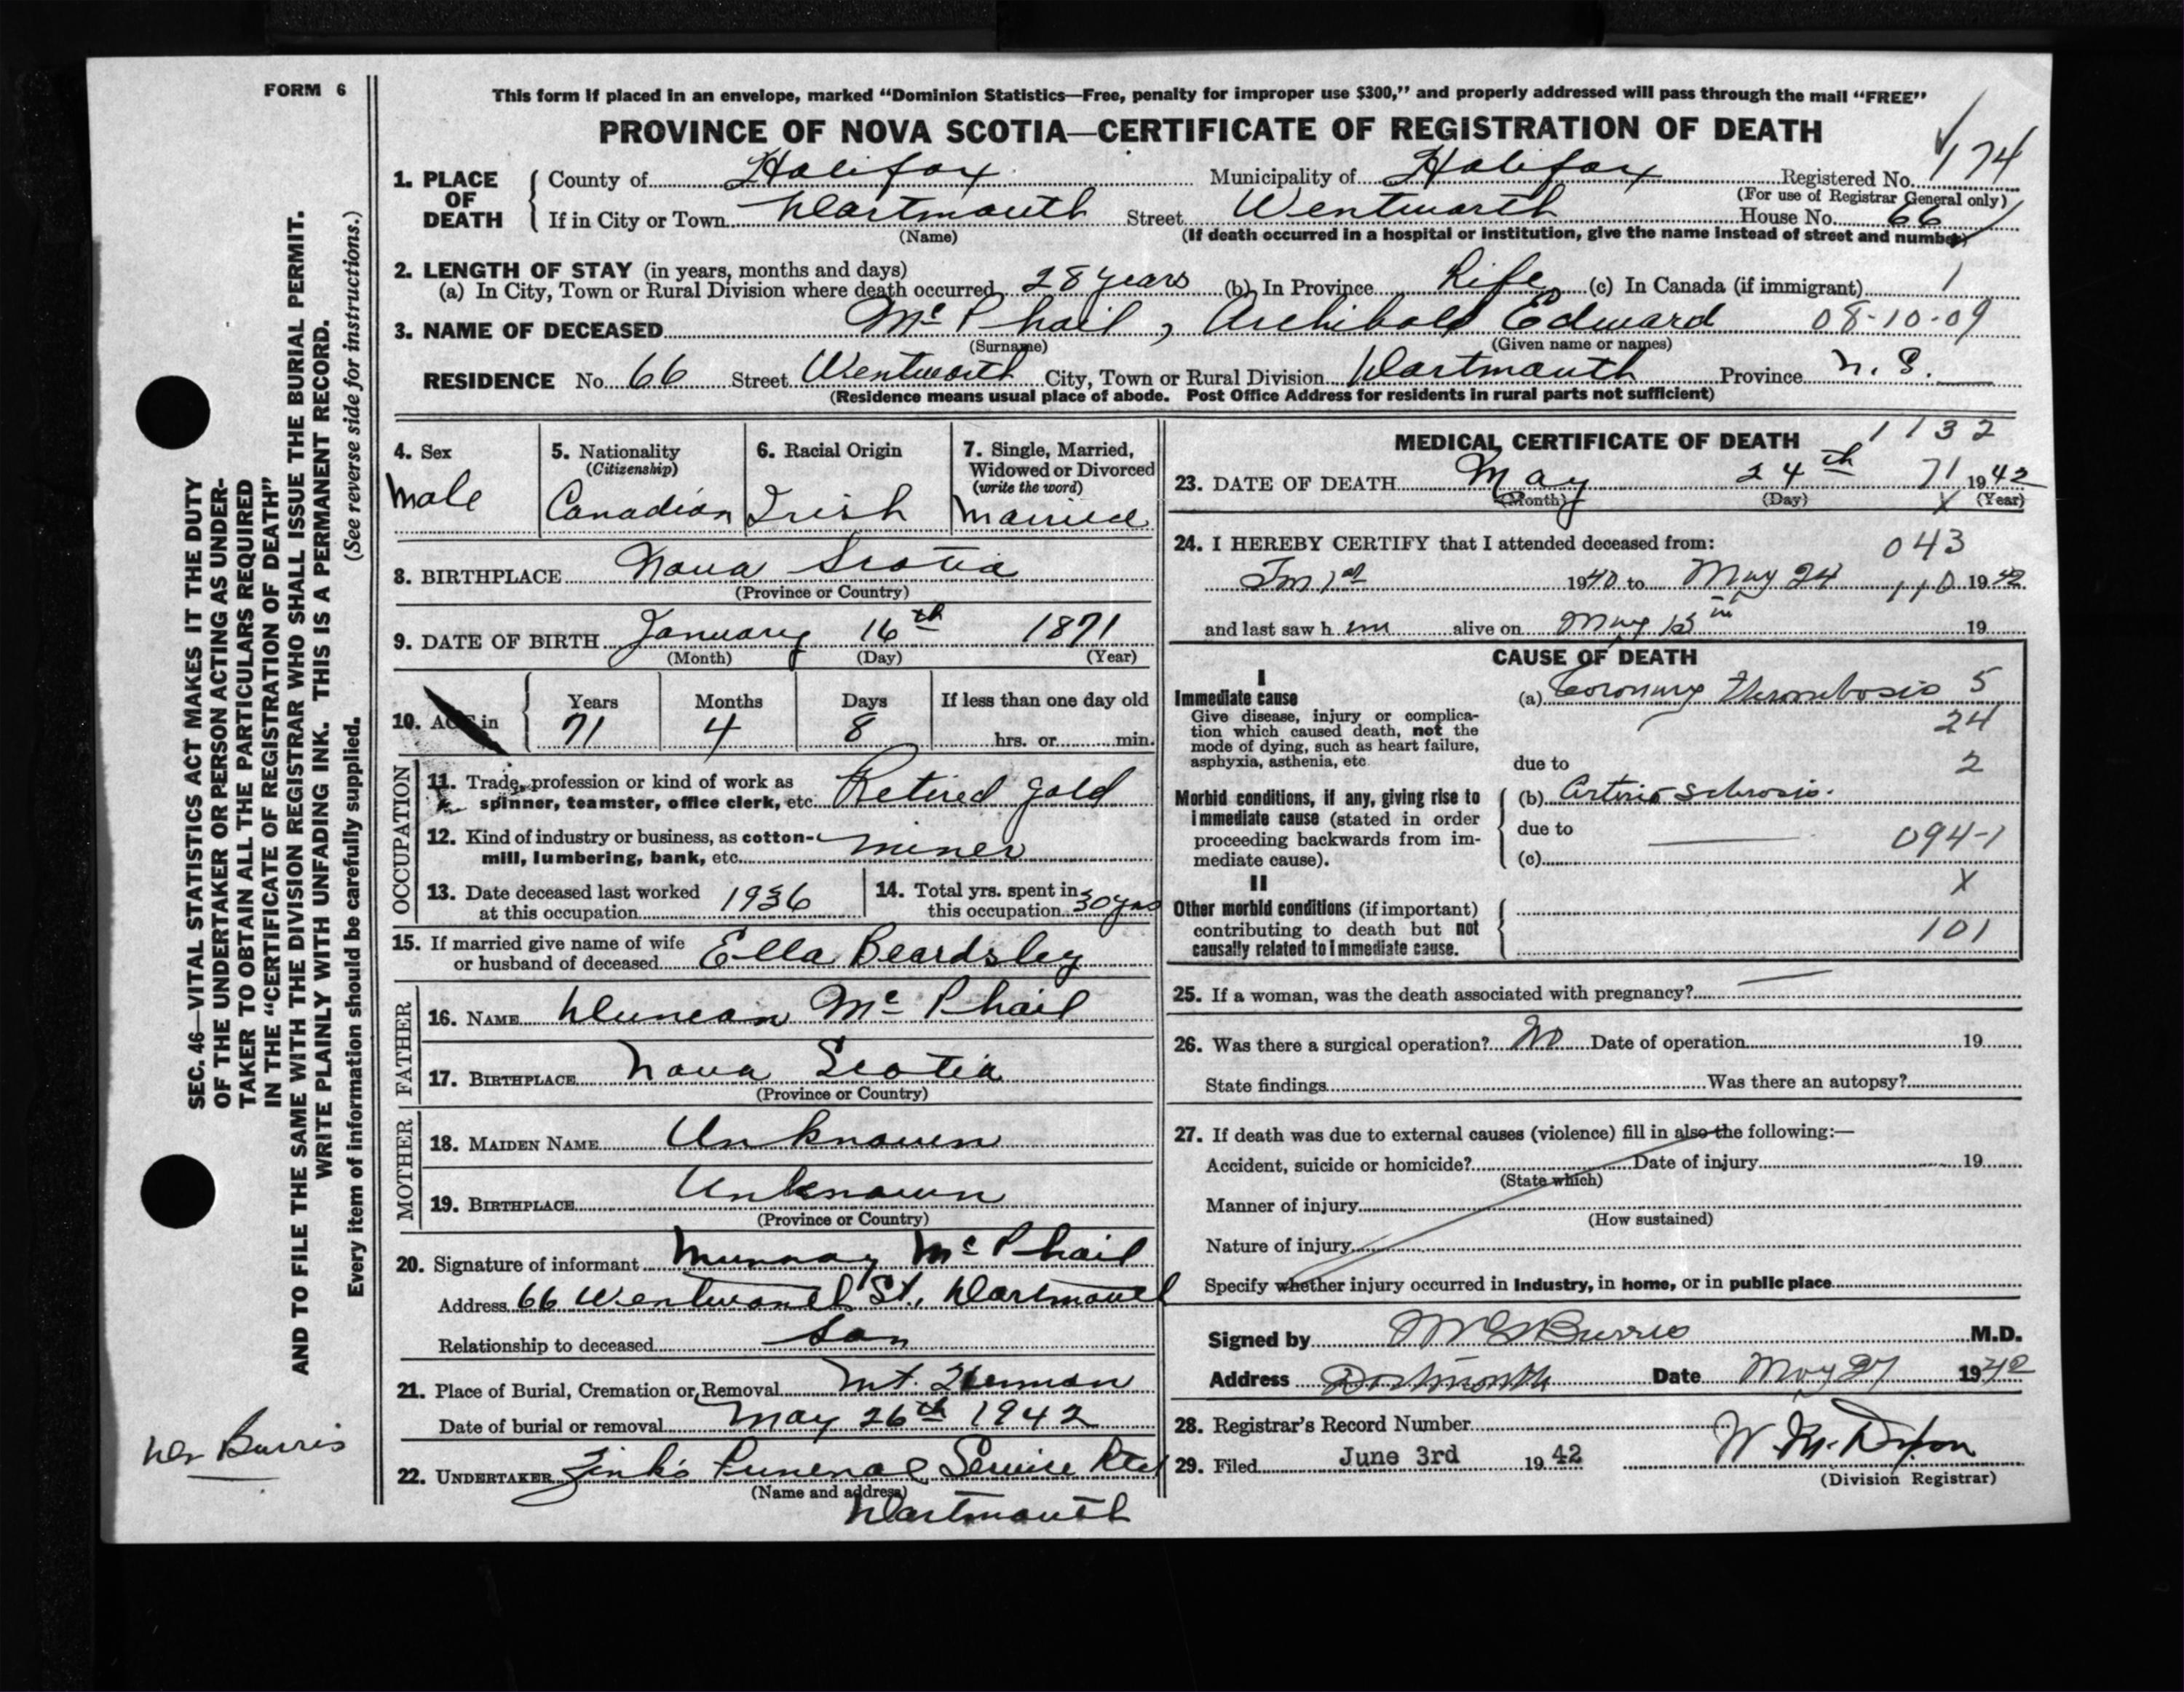 FORM 6
This form if placed in an envelope, marked “Dominion Statistics—Free, penalty for improper use $300,” and properly addressed will pass through the mail “FREE”
PROVINCE OF NOVA SCOTIA—CERTIFICATE OF REGISTRATION OF DEATH
1. PLACE OF DEATH { County of Halifax Municipality of Halifax Registered No. 174
(For use of Registrar General only)
If in City or Town Dartmouth Street Wentworth House No. 66
(Name) (If death occurred in a hospital or institution, give the name instead of street and number)
2. LENGTH OF STAY (in years, months and days)
(a) In City, Town or Rural Division where death occurred 28 years (b) In Province Life (c) In Canada (if immigrant) 1
3. NAME OF DECEASED McPhail, Archibald Edward 08-10-09
(Surname) (Given name or names)
RESIDENCE No. 66 Street Wentworth City, Town or Rural Division Dartmouth Province N.S.
(Residence means usual place of abode. Post Office Address for residents in rural parts not sufficient)
4. Sex Male
5. Nationality (Citizenship) Canadian
6. Racial Origin Irish
7. Single, Married, Widowed or Divorced (write the word) Married
8. BIRTHPLACE Nova Scotia
(Province or Country)
9. DATE OF BIRTH January 16th 1871
(Month) (Day) (Year)
10. AGE in Years 71 Months 4 Days 8 If less than one day old
hrs. or min.
OCCUPATION
11. Trade, profession or kind of work as
spinner, teamster, office clerk, etc. Retired gold
12. Kind of industry or business, as cotton-
mill, lumbering, bank, etc. miner
13. Date deceased last worked at this occupation 1936
14. Total yrs. spent in this occupation 30 yrs
15. If married give name of wife
or husband of deceased Ella Beardsley
FATHER
16. NAME Duncan McPhail
17. BIRTHPLACE Nova Scotia
(Province or Country)
MOTHER
18. MAIDEN NAME Unknown
19. BIRTHPLACE Unknown
(Province or Country)
20. Signature of informant Murray McPhail
Address 66 Wentworth St., Dartmouth
Relationship to deceased Son
21. Place of Burial, Cremation or Removal Mt. Herman
Date of burial or removal May 26th 1942
22. UNDERTAKER Zink's Funeral Service Ltd
(Name and address)
Dartmouth
MEDICAL CERTIFICATE OF DEATH 1132
23. DATE OF DEATH May 24th 71 1942
(Month) (Day) X (Year)
24. I HEREBY CERTIFY that I attended deceased from: 043
1940 to May 24 110 1942
and last saw h im alive on May 13th 19
CAUSE OF DEATH
I
Immediate cause (a) Coronary thrombosis 5
Give disease, injury or complica-
tion which caused death, not the 24
mode of dying, such as heart failure,
asphyxia, asthenia, etc. due to 2
Morbid conditions, if any, giving rise to (b) Arterio sclerosis.
immediate cause (stated in order
proceeding backwards from im- due to
mediate cause). (c) 094-1
II X
Other morbid conditions (if important)
contributing to death but not 101
causally related to immediate cause.
25. If a woman, was the death associated with pregnancy?
26. Was there a surgical operation? No Date of operation 19
State findings Was there an autopsy?
27. If death was due to external causes (violence) fill in also the following:—
Accident, suicide or homicide? Date of injury 19
(State which)
Manner of injury
(How sustained)
Nature of injury
Specify whether injury occurred in industry, in home, or in public place
Signed by Burris M.D.
Address Dartmouth Date May 27 1942
28. Registrar's Record Number
29. Filed June 3rd 1942 W. M. Dixon
(Division Registrar)
SEC. 46—VITAL STATISTICS ACT MAKES IT THE DUTY
OF THE UNDERTAKER OR PERSON ACTING AS UNDER-
TAKER TO OBTAIN ALL THE PARTICULARS REQUIRED
IN THE “CERTIFICATE OF REGISTRATION OF DEATH”
AND TO FILE THE SAME WITH THE DIVISION REGISTRAR WHO SHALL ISSUE THE BURIAL PERMIT.
WRITE PLAINLY WITH UNFADING INK. THIS IS A PERMANENT RECORD.
Every item of information should be carefully supplied. (See reverse side for instructions.)
Dr Burris